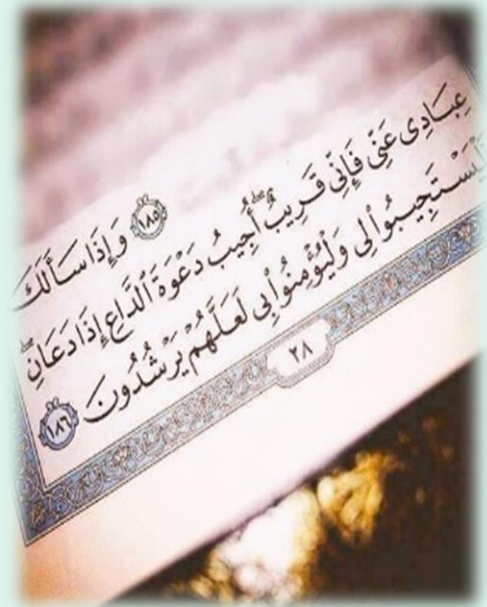 ﴿١٨٥﴾ وَإِذَا سَأَلَكَ
عِبَادِى عَنِّى فَإِنِّى قَرِيبٌ ۖ أُجِيبُ دَعْوَةَ ٱلدَّاعِ إِذَا دَعَانِ ۖ
لْيَسْتَجِيبُوا۟ لِى وَلْيُؤْمِنُوا۟ بِى لَعَلَّهُمْ يَرْشُدُونَ ﴿١٨٦﴾
٢٨